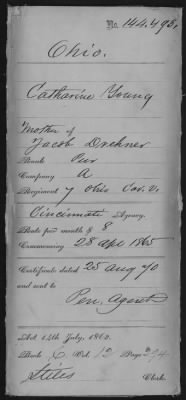 No. 144,495,
Ohio.
Catharine Young
Mother of
Jacob Drehner
Rank Pvr
Company A
Regiment 7 Ohio Cav. V.
Cincinnati Agency.
Rate per month $ 8
Commencing 28 Apl 1865
Certificate dated 25 Aug 70
and sent to
Pen. Agent
Act 14th July, 1862.
Book C Vol. 12 Page 294
Stiles Clerk.